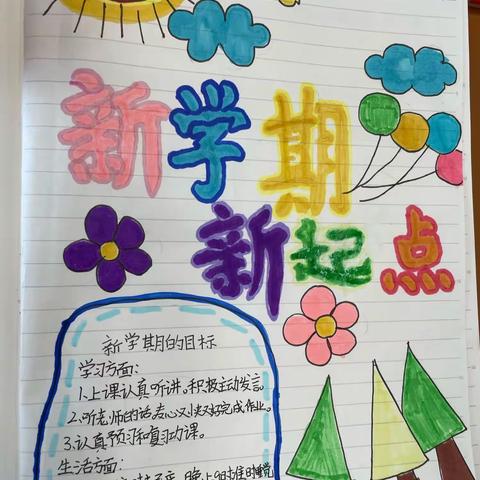 新学期
新起点
新学期的目标
学习方面:
1.上课认真听讲。积极主动发言。
2.听老师的话,
3.认真预习和复习功课。
生活方面:
晚上9时准时睡觉